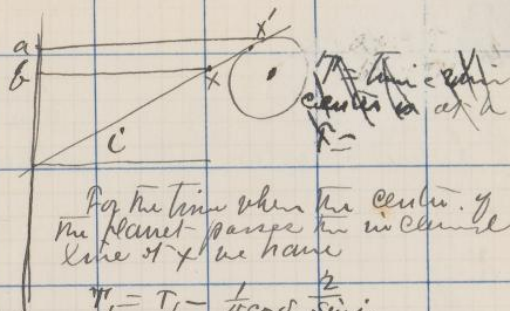 a
x'
b
x
i
T = time when
center is at a
T =
For the time when the center of
the planet passes the inclined
line at x we have
T₁ = T, -